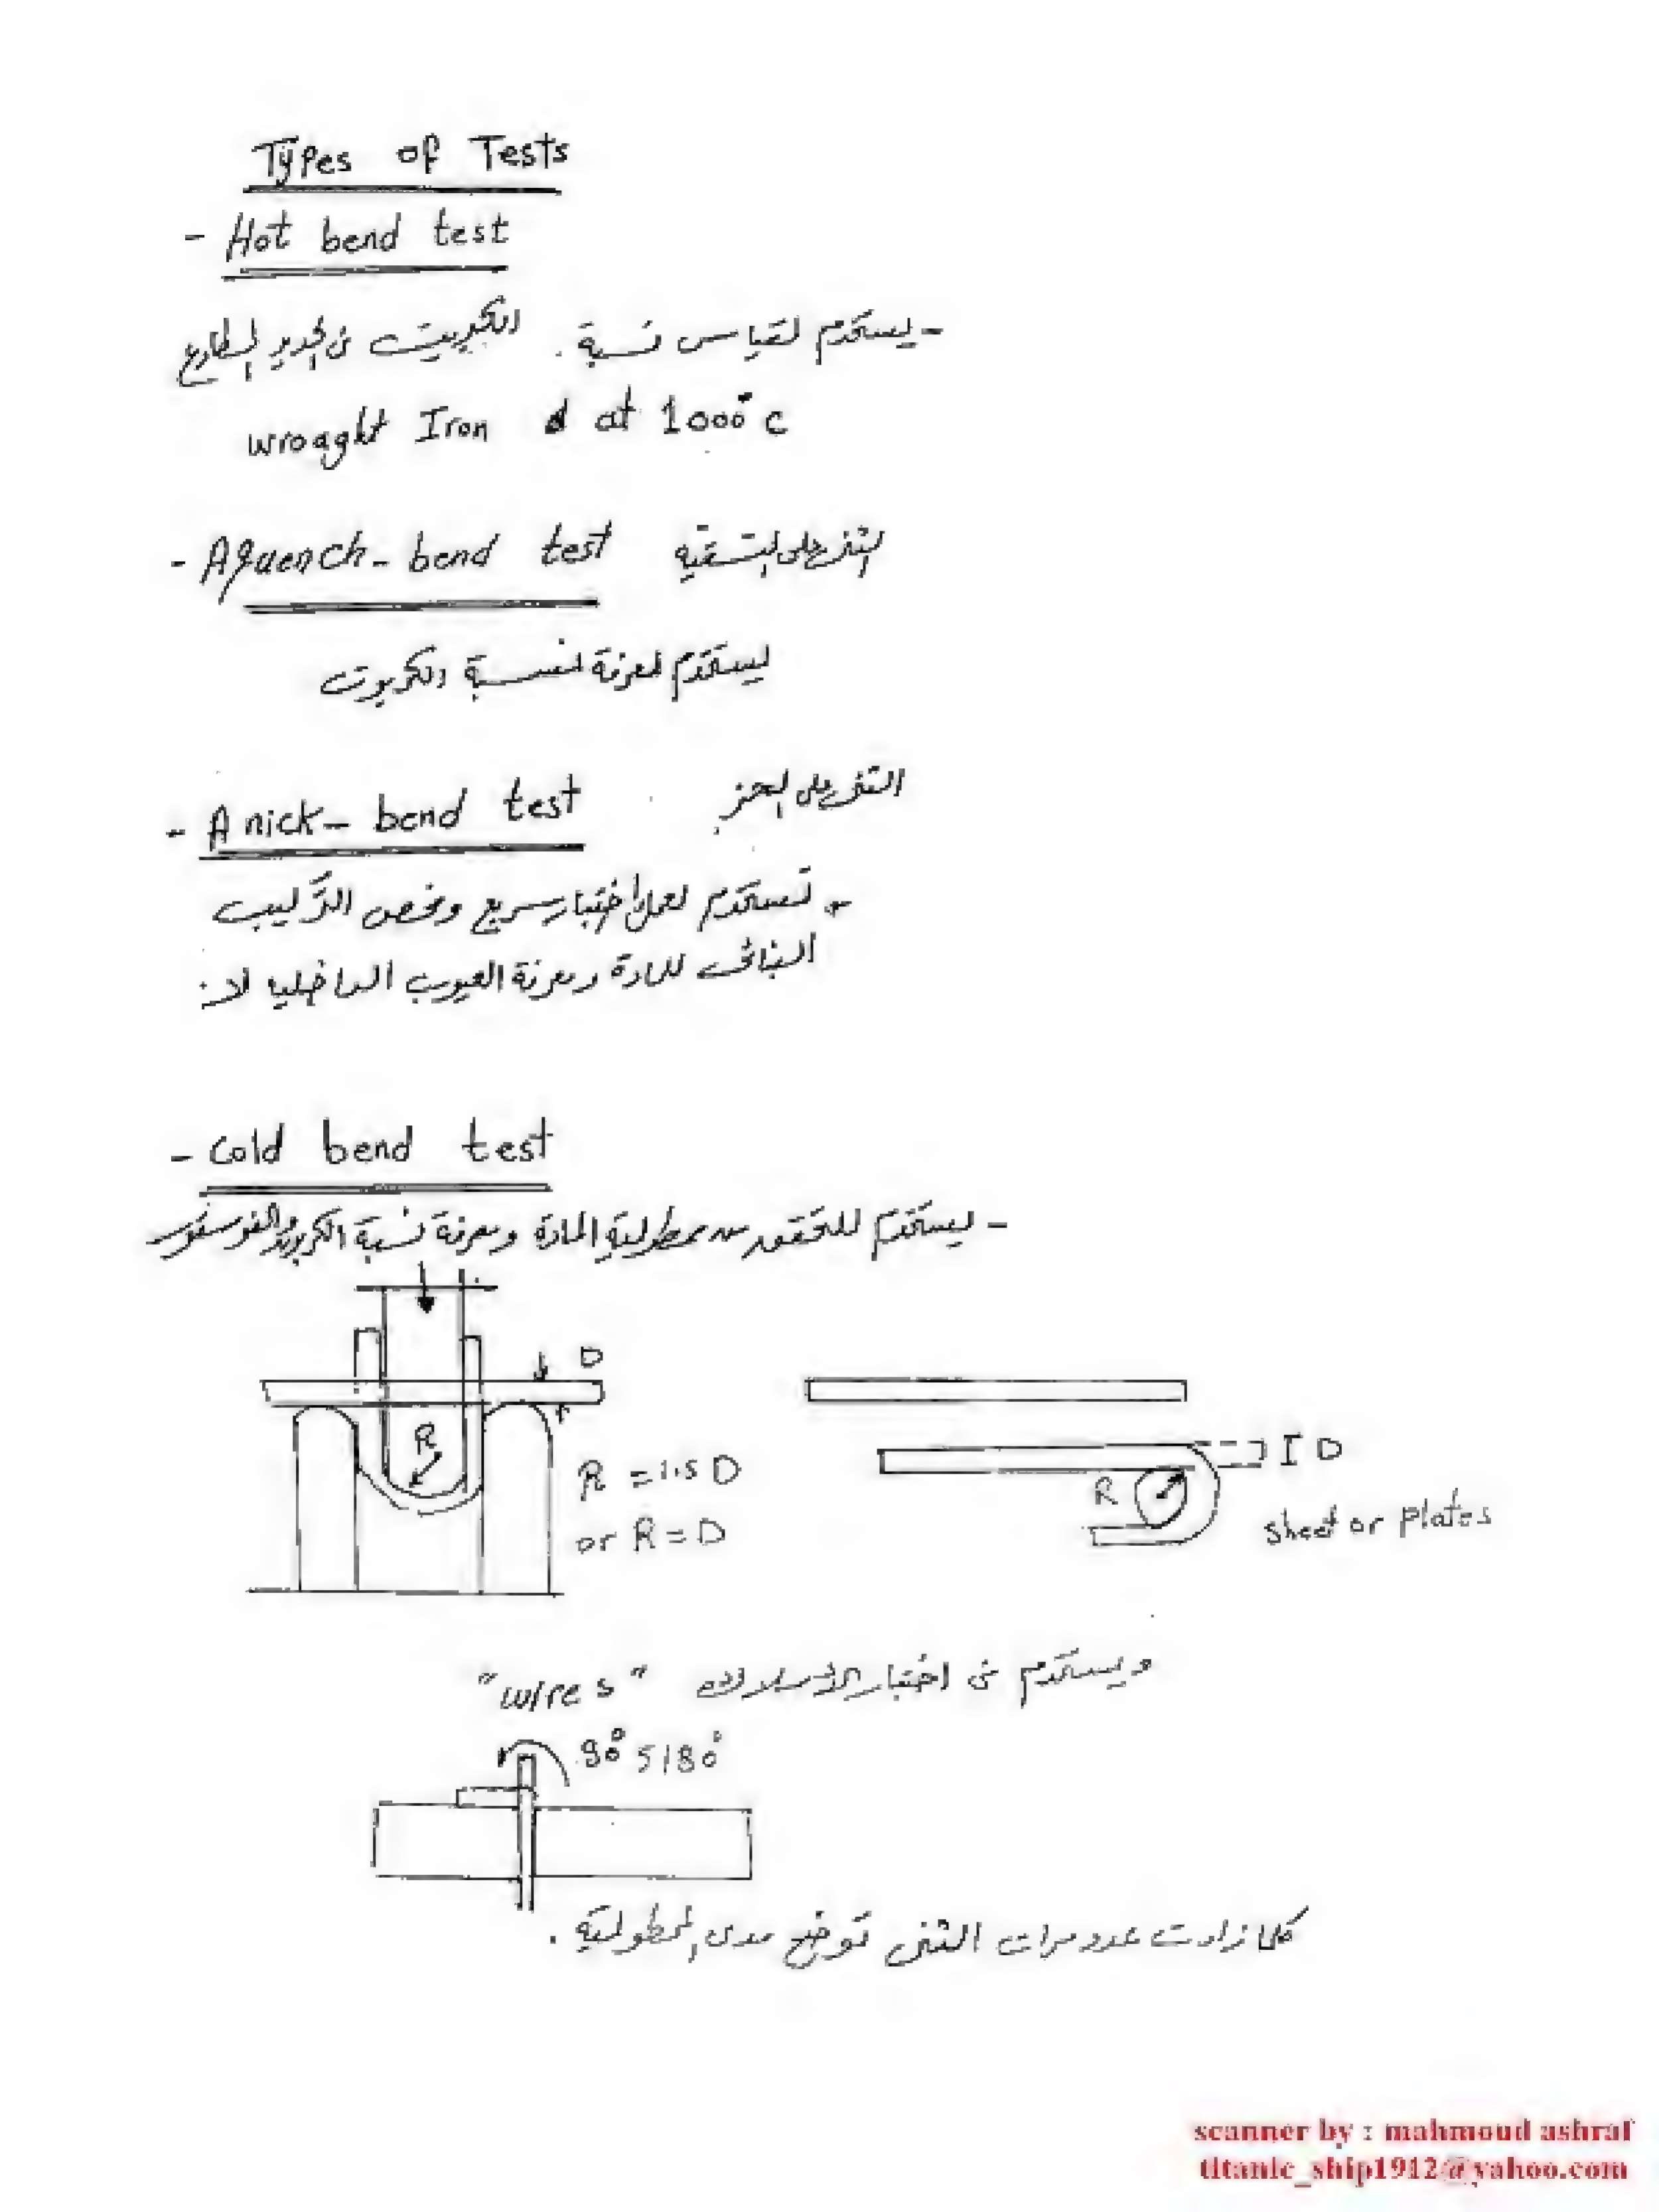 Types of Tests
- Hot bend test
- يستخدم لقياس نسبة الكبريت فى الحديد المطاوع
wroaght Iron d at 1000°c
- Aquench- bend test الثنى على التسقية
يستخدم لمعرفة نسبة الكربون
- A nick- bend test الثنى على الحز
- تستخدم لعمل اختبار سريع وفحص التركيب
البنائى للمادة ومعرفة العيوب الداخليا لا
- Cold bend test
- يستخدم للتحقق من ممطولية المادة ومعرفة نسبة الكربون والفوسفور
D
R
R = 1.5 D
or R = D
I D
R
sheet or plates
ويستخدم فى اختبار الاسلاك "wires"
90° 5 180°
كلما زادت عدد مرات الثنى توضح مدى الممطولية .
scanner by : mahmoud ashraf
titanic_ship1912@yahoo.com